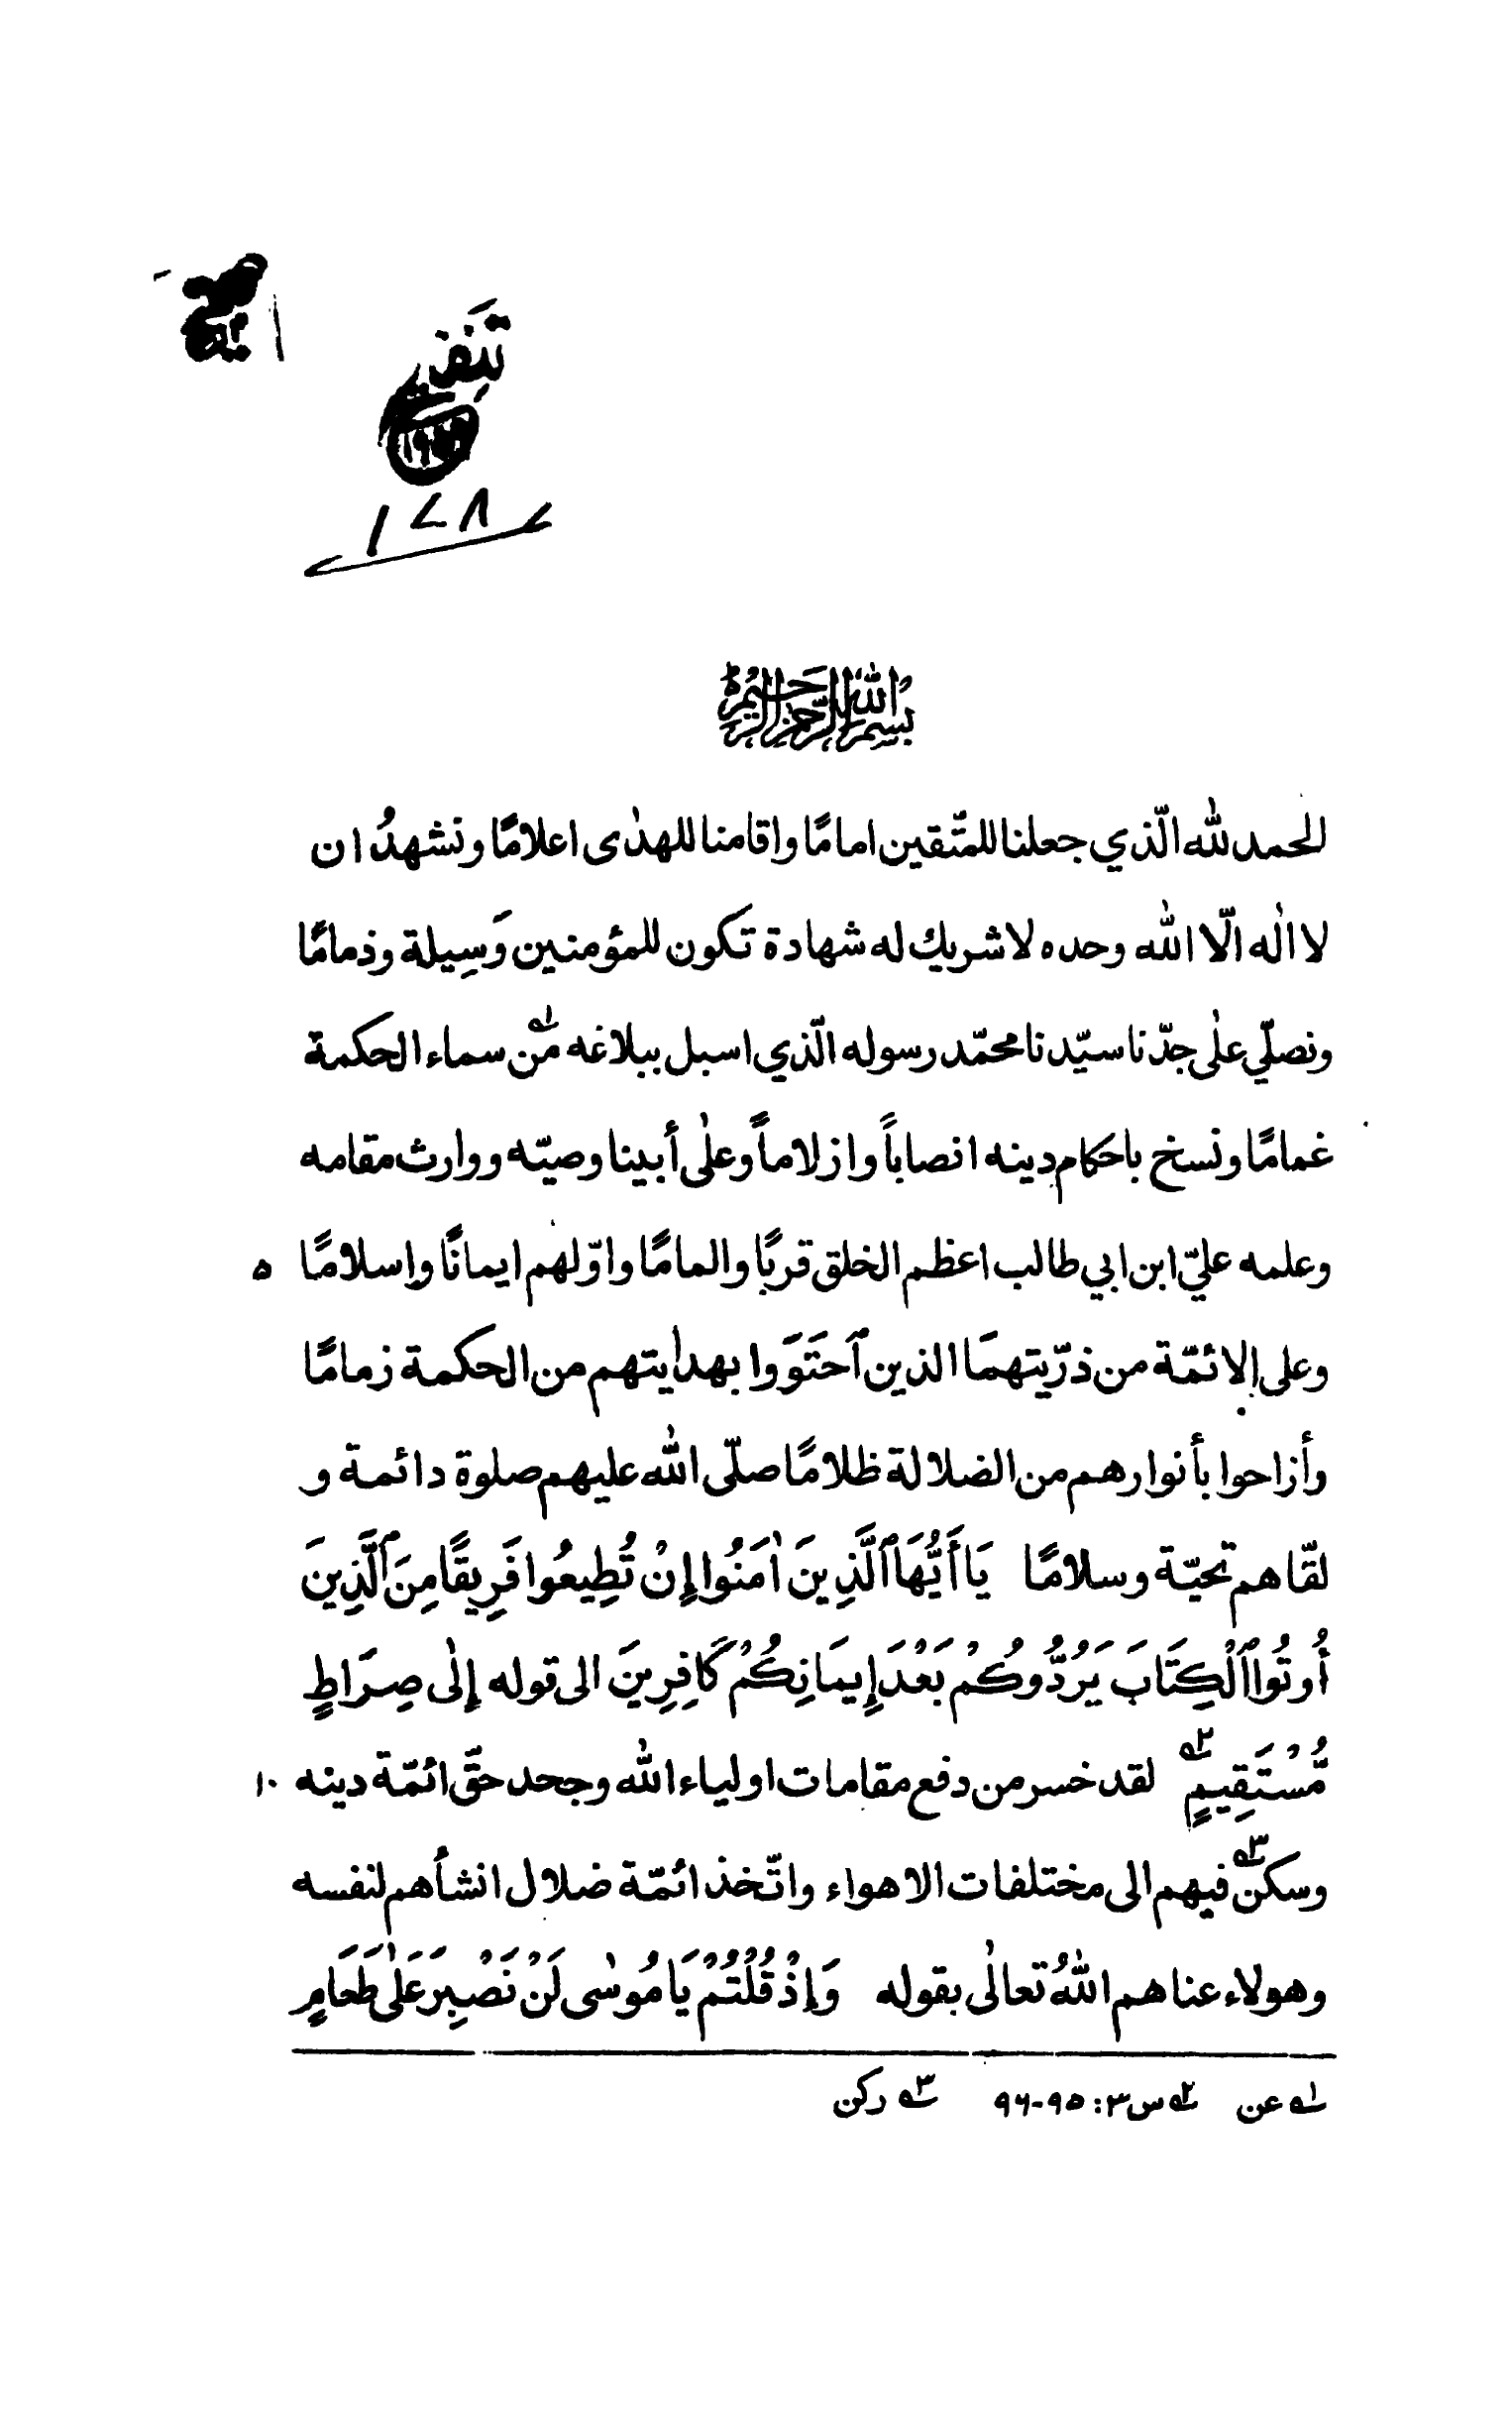 ١٧٨
بسم الله الرحمن الرحيم
الحمد لله الّذي جعلنا للمتّقين امامًا واقامنا للهدٰى اعلامًا ونشهدُ ان
لا الٰه الّا الله وحده لا شريك له شهادة تكون للمؤمنين وَسِيلة وذمامًا
ونصلّي علٰى جدّنا سيّدنا محمّد رسوله الّذي اسبل ببلاغه من١ سماء الحكمة
غمامًا ونسخ باحكام دينه انصاباً وازلاماً وعلٰى أبينا وصيّه ووارث مقامه
وعلمه عليّ ابن ابي طالب اعظم الخلق قربًا والمامًا واوّلهم ايمانًا وإسلامًا ٥
وعلى الائمّة من ذرّيتهمَا الذين ٱحتَوَوا بهدايتهم من الحكمة زمامًا
وأزاحوا بأنوارهم من الضلالة ظلامًا صلّى الله عليهم صلوة دائمة و
لقّاهم تحيّة وسلامًا يَا أَيُّهَا ٱلَّذِينَ اٰمَنُوا إِنْ تُطِيعُوا فَرِيقًا مِنَ ٱلَّذِينَ
أُوتُوا ٱلْكِتَابَ يَرُدُّوكُمْ بَعْدَ إِيمَانِكُمْ كَافِرِينَ الى قوله إِلٰى صِرَاطٍ
مُّسْتَقِيمٍ٢ لقد خسر من دفع مقامات اولياء الله وجحد حقّ ائمّة دينه ١٠
وسكن٣ فيهم الى مختلفات الاهواء واتّخذ ائمّة ضلال انشأهم لنفسه
وهولاء عناهم اللهُ تعالٰى بقوله وَإِذْ قُلْتُمْ يَا مُوسٰى لَنْ نَصْبِرَ عَلٰى طَعَامٍ
١ عن ٢ س ٣: ٩٥-٩٦ ٣ ركن